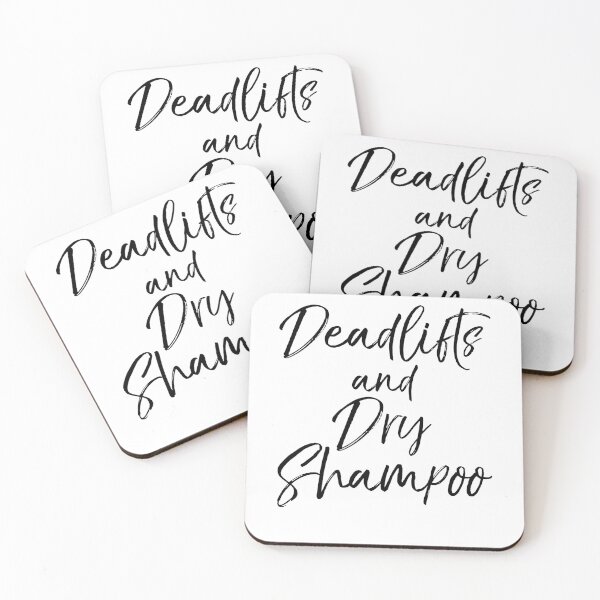 Deadlifts
and
Dry
Deadlifts
and
Dry
Shampoo
Deadlifts
and
Dry
Sham
Deadlifts
and
Dry
Shampoo